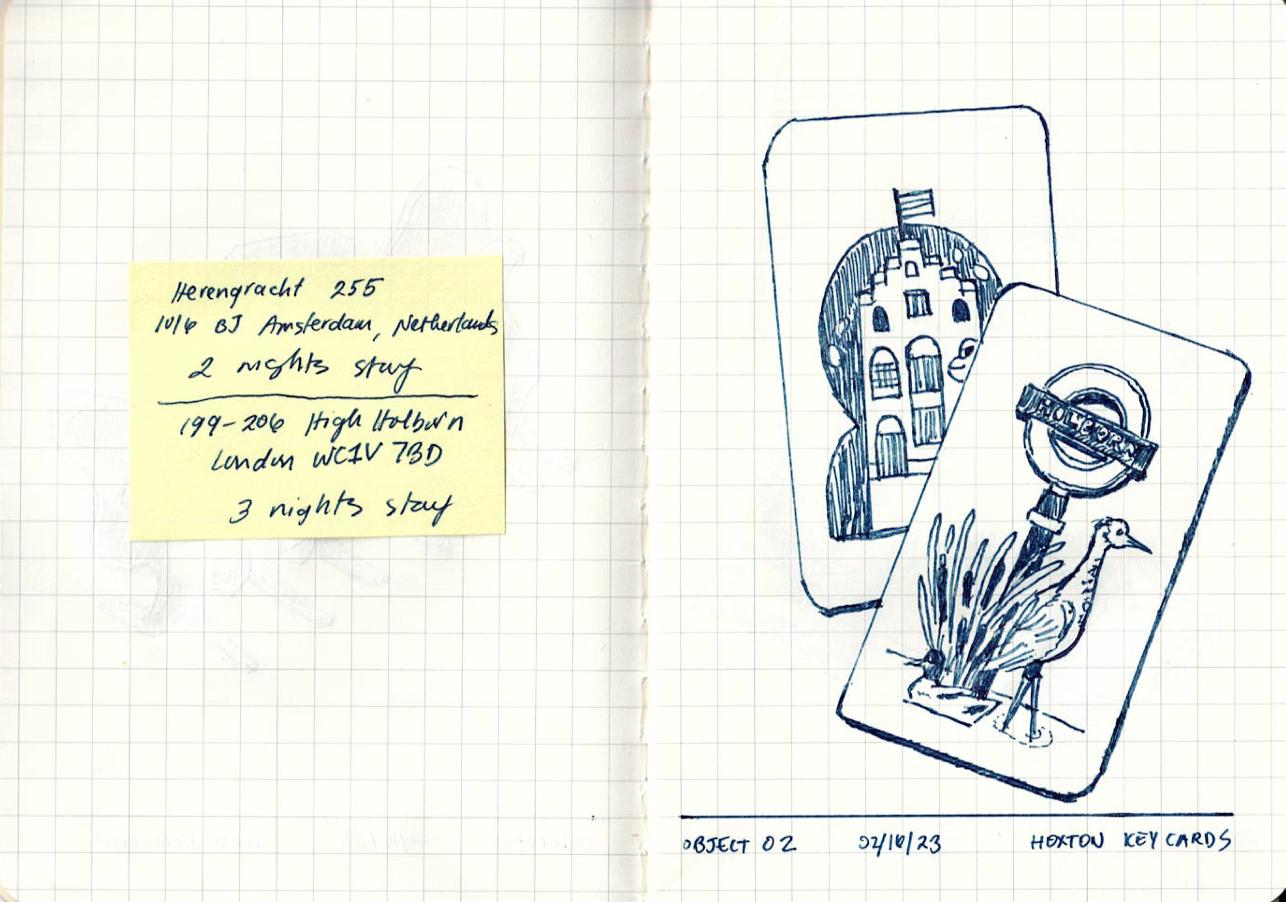 Herengracht 255
1016 BJ Amsterdam, Netherlands
2 nights stay
199-206 High Holborn
London WC1V 7BD
3 nights stay
HOLBORN
OBJECT 02 02/10/23 HOXTON KEY CARDS